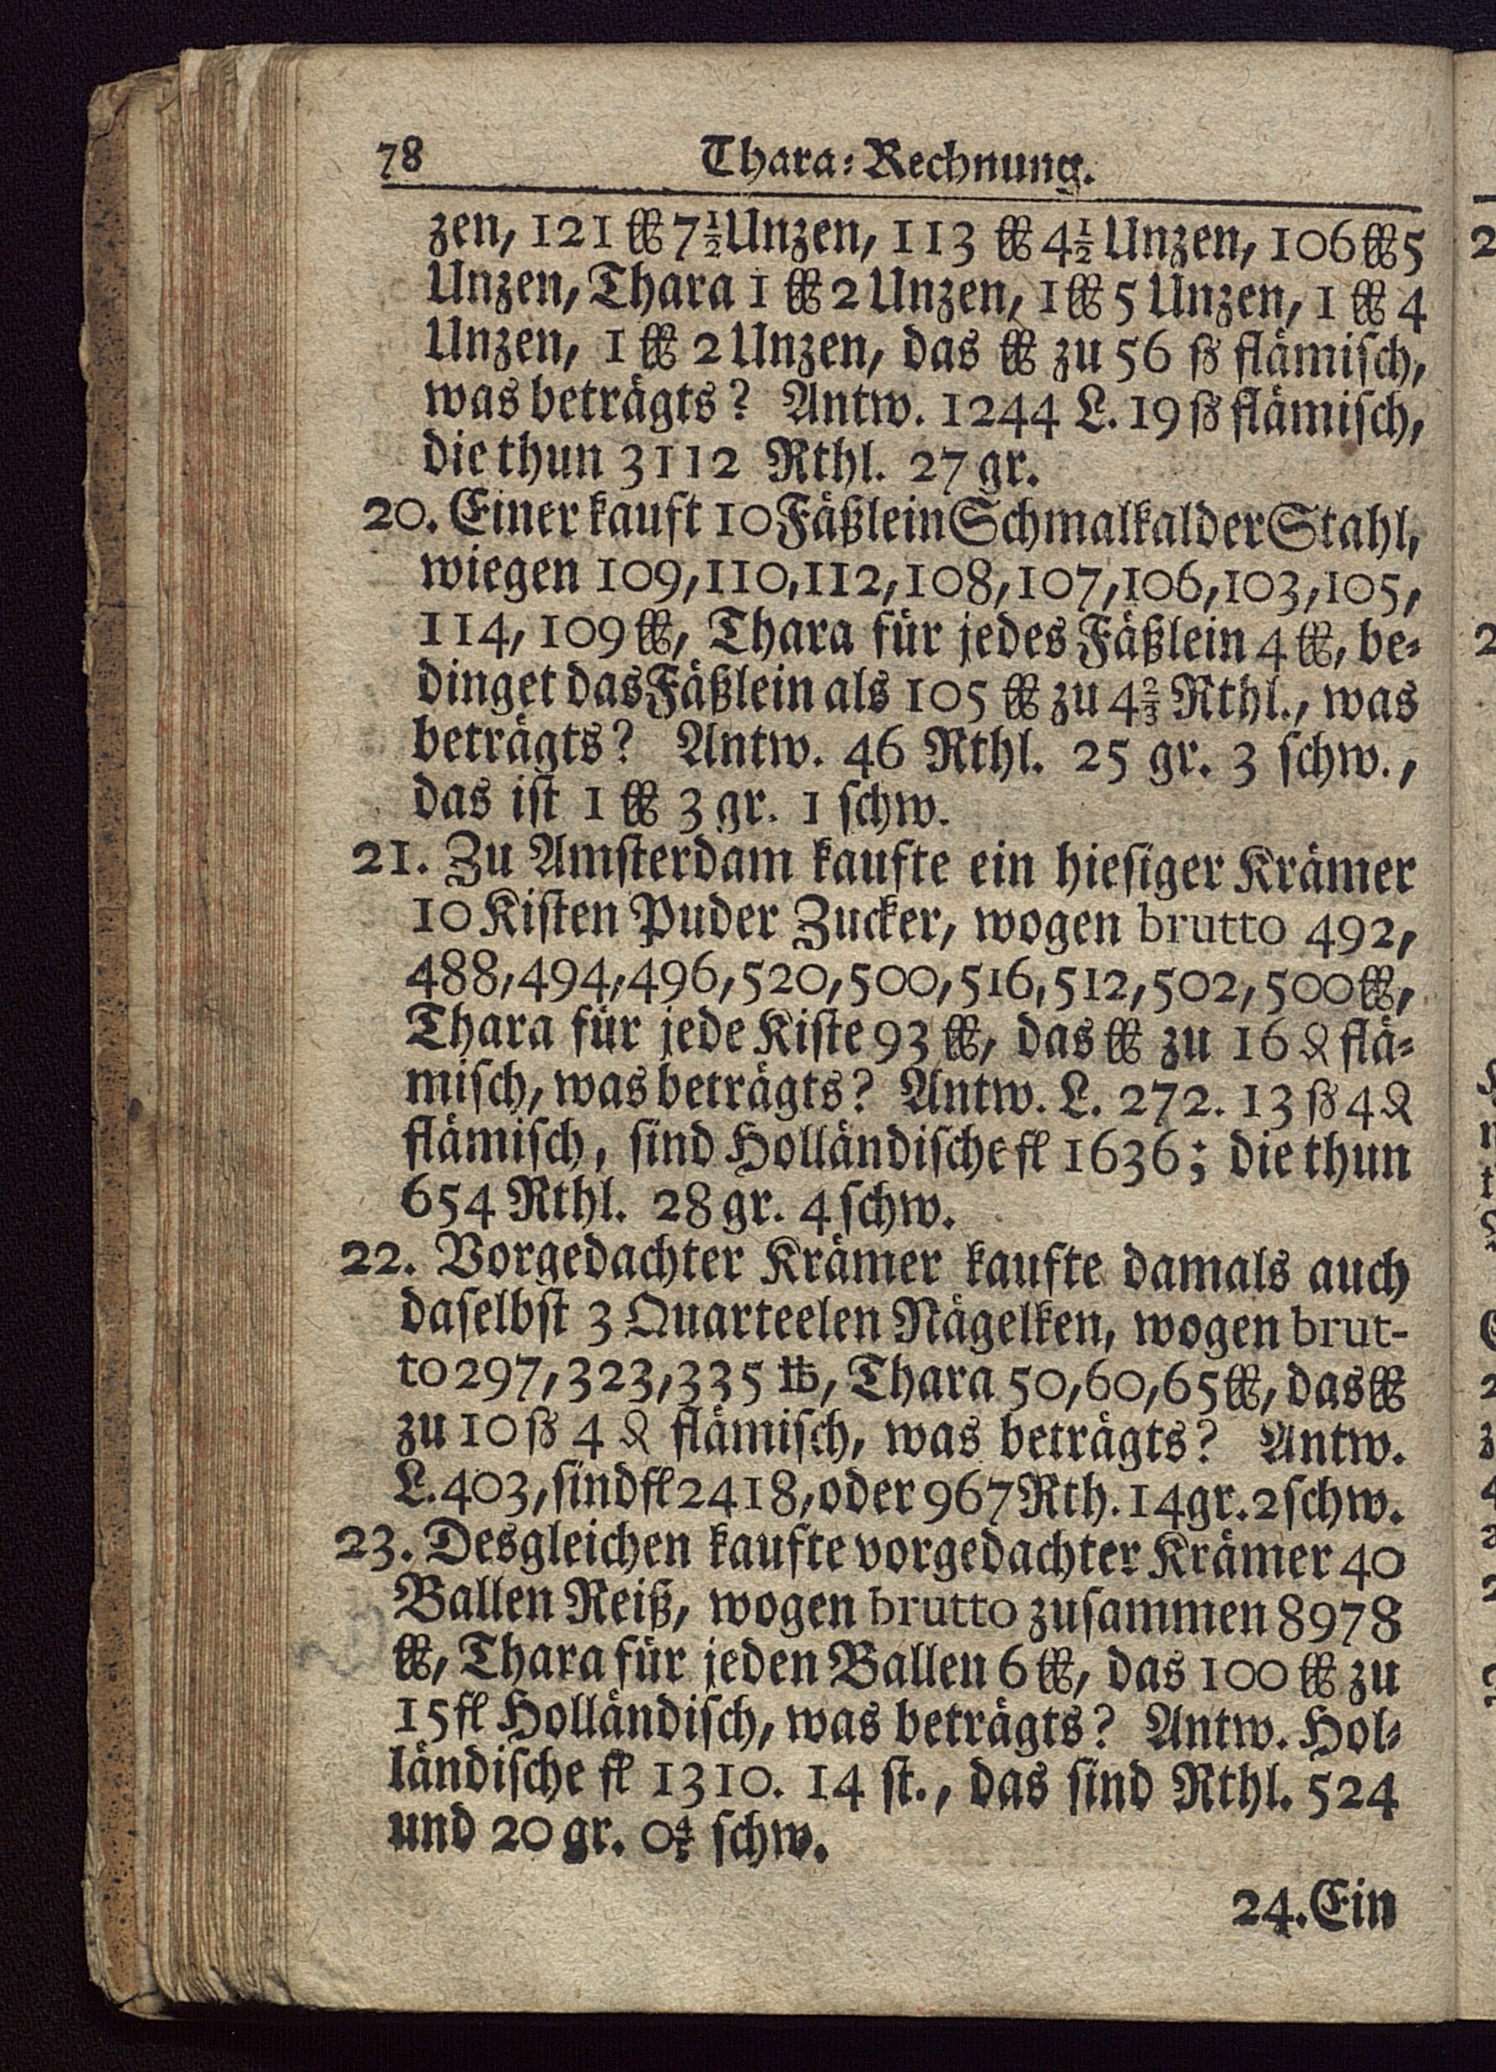 78 Thara-Rechnung.
zen, 121 ℔ 7½ Unzen, 113 ℔ 4½ Unzen, 106 ℔ 5
Unzen, Thara 1 ℔ 2 Unzen, 1 ℔ 5 Unzen, 1 ℔ 4
Unzen, 1 ℔ 2 Unzen, das ℔ zu 56 ß flämisch,
was beträgts? Antw. 1244 L. 19 ß flämisch,
die thun 3112 Rthl. 27 gr.
20. Einer kauft 10 Fäßlein Schmalkalder Stahl,
wiegen 109, 110, 112, 108, 107, 106, 103, 105,
114, 109 ℔, Thara für jedes Fäßlein 4 ℔, be-
dinget das Fäßlein als 105 ℔ zu 4⅔ Rthl., was
beträgts? Antw. 46 Rthl. 25 gr. 3 schw.,
das ist 1 ℔ 3 gr. 1 schw.
21. Zu Amsterdam kaufte ein hiesiger Krämer
10 Kisten Puder Zucker, wogen brutto 492,
488, 494, 496, 520, 500, 516, 512, 502, 500 ℔,
Thara für jede Kiste 93 ℔, das ℔ zu 16 ₰ flä-
misch, was beträgts? Antw. L. 272. 13 ß 4 ₰
flämisch, sind Holländische fl 1636; die thun
654 Rthl. 28 gr. 4 schw.
22. Vorgedachter Krämer kaufte damals auch
daselbst 3 Quarteelen Nägelken, wogen brut-
to 297, 323, 335 ℔, Thara 50, 60, 65 ℔, das ℔
zu 10 ß 4 ₰ flämisch, was beträgts? Antw.
L. 403, sind fl 2418, oder 967 Rth. 14 gr. 2 schw.
23. Desgleichen kaufte vorgedachter Krämer 40
Ballen Reiß, wogen brutto zusammen 8978
℔, Thara für jeden Ballen 6 ℔, das 100 ℔ zu
15 fl Holländisch, was beträgts? Antw. Hol-
ländische fl 1310. 14 st., das sind Rthl. 524
und 20 gr. schw.
24. Ein